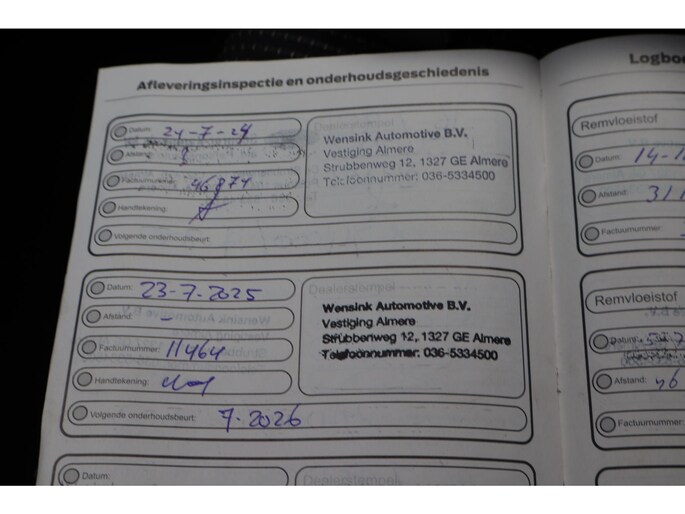 Afleveringsinspectie en onderhoudsgeschiedenis
Datum: 24-7-24
Afstand:
Factuurnummer: 46874
Handtekening:
Volgende onderhoudsbeurt:
Wensink Automotive B.V.
Vestiging Almere
Strubbenweg 12, 1327 GE Almere
Telefoonnummer: 036-5334500
Datum: 23-7-2025
Afstand: -
Factuurnummer: 11464
Handtekening:
Volgende onderhoudsbeurt: 7-2026
Dealerstempel
Wensink Automotive B.V.
Vestiging Almere
Strubbenweg 12, 1327 GE Almere
Telefoonnummer: 036-5334500
Datum:
Dealerstempel
Logbo
Remvloeistof
Datum: 14-1
Afstand: 31
Factuurnummer:
Remvloeistof
Datum:
Afstand: 46
Factuurnummer: